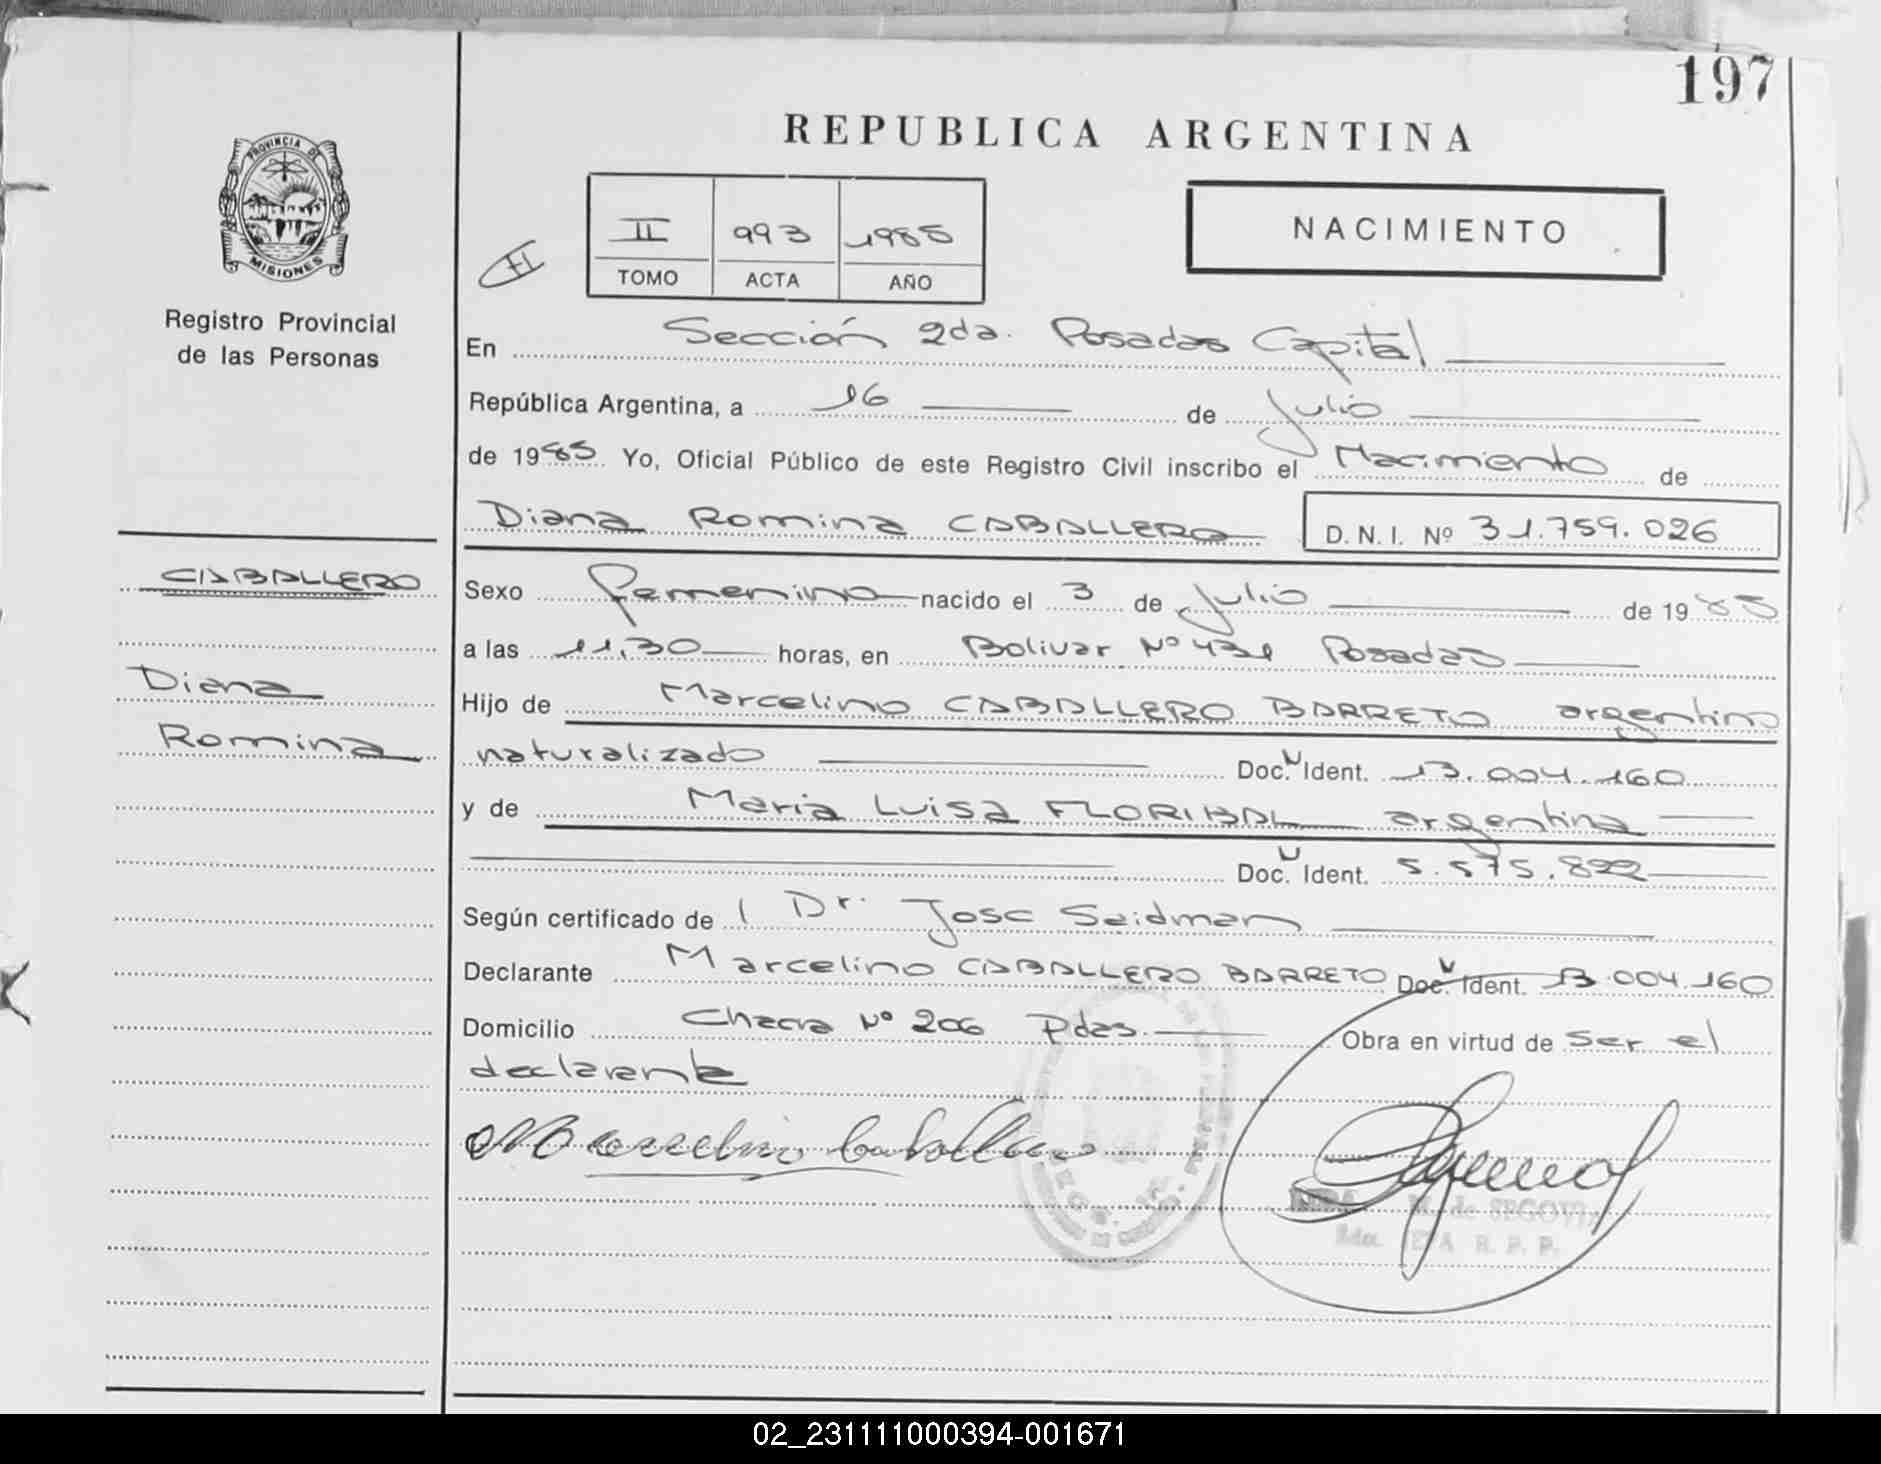 197
REPUBLICA ARGENTINA
PROVINCIA DE
MISIONES
Registro Provincial
de las Personas
II 993 1985
TOMO ACTA AÑO
NACIMIENTO
En Sección 2da. Posadas Capital
República Argentina, a 16 de Julio
de 1985 Yo, Oficial Público de este Registro Civil inscribo el Nacimiento de
Diana Romina CABALLERO D.N.I. Nº 31.759.026
CABALLERO
Diana
Romina
Sexo femenino nacido el 3 de Julio de 1985
a las 11,30 horas, en Bolivar Nº 431 Posadas
Hijo de Marcelino CABALLERO BARRETO argentino
naturalizado Doc. Ident. 13.004.160
y de Maria Luisa FLORIBAL argentina
Doc. Ident. 5.575.822
Según certificado de Dr. Jose Seidman
Declarante Marcelino CABALLERO BARRETO Doc. Ident. 13.004.160
Domicilio Chacra Nº 206 Pdas. Obra en virtud de ser el
declarante
Marcelino Caballero
M. de SEGOVIA
2da. R. P. P.
02_231111000394-001671